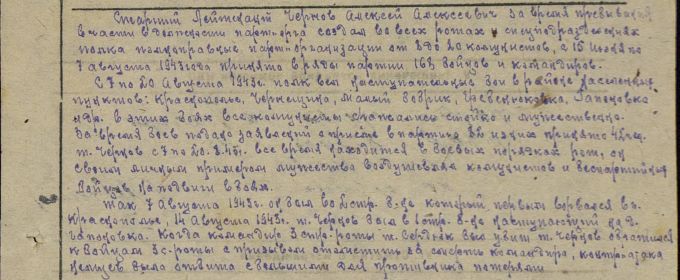 Старший Лейтенант Чернов Алексей Алексеевич за время пребывания
в части в должности парт-орга создал во всех ротах и спецподразделениях
полка полноправные парт-организации от 8 до 20 коммунистов, с 15 июля по
7 августа 1943 года принято в ряды партии 168 бойцов и командиров.
С 7 по 20 Августа 1943г. полк вел наступательные бои в районе населенных
пунктов: Краснополье, Чернещина, Малый Бобрик, Гапоновка
и др. в этих боях все коммунисты сражались стойко и мужественно.
Во время боев подано заявлений о приеме в партию 82 из них принято
т. Чернов с 7 по 20.8.43г. все время находится в боевых порядках рот, он
своим личным примером мужества воодушевлял коммунистов и беспартийных
бойцов на подвиги в боях.
Так 7 Августа 1943г. он был во 2 стр. б-не который первым ворвался в
Краснополье, 14 Августа 1943г. т. Чернов был в 1 стр. б-не наступающий на д.
Гапоновка. Когда командир 3 стр-роты т. был убит т. Чернов обратился
к бойцам 3 с-роты с призывом отомстить за смерть командира, контратака
немцев была отбита с большими для противника потерями